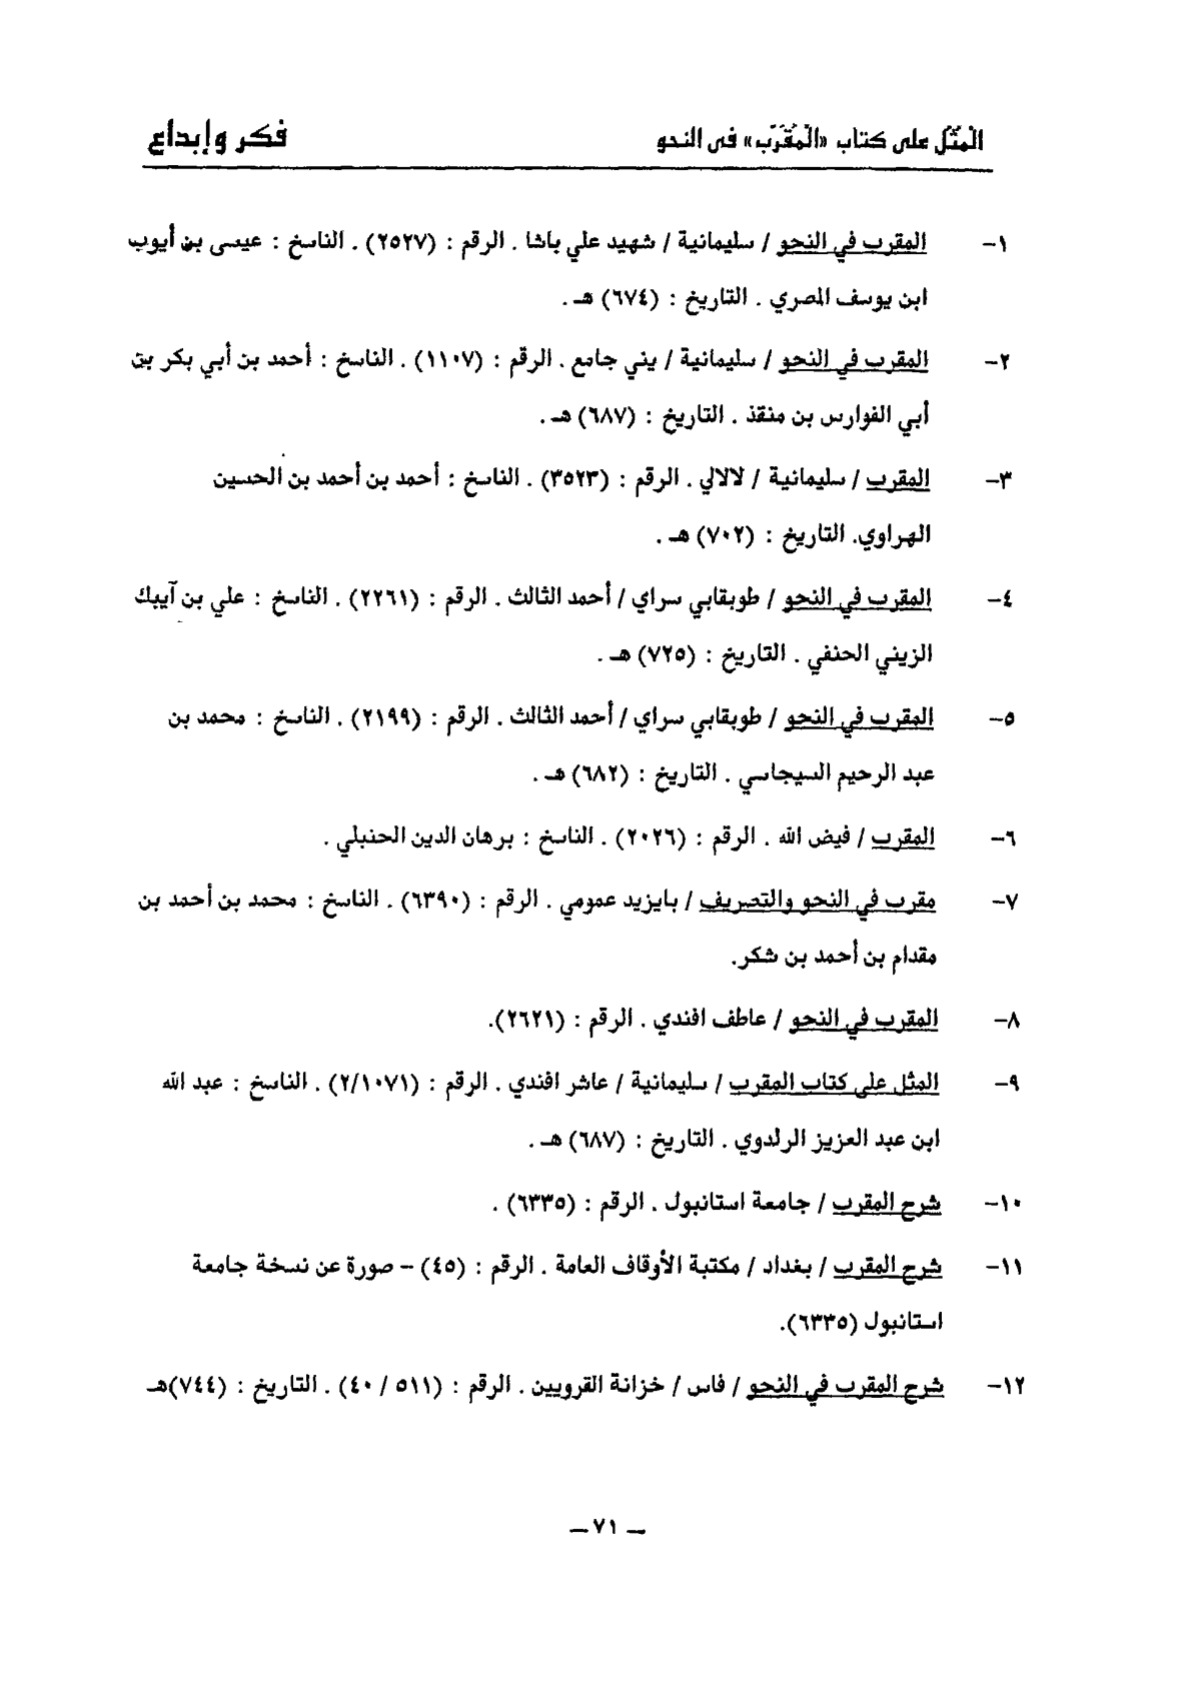 المُثُل على كتاب «المُقَرّب» فى النحو
فكر وإبداع
١– المقرب في النحو / سليمانية / شهيد علي باشا . الرقم : (٢٥٢٧) . الناسخ : عيسى بن أيوب
ابن يوسف المصري . التاريخ : (٦٧٤) هـ .
٢– المقرب في النحو / سليمانية / يني جامع . الرقم : (١١٠٧) . الناسخ : أحمد بن أبي بكر بن
أبي الفوارس بن منقذ . التاريخ : (٦٨٧) هـ .
٣– المقرب / سليمانية / لالالي . الرقم : (٣٥٢٣) . الناسخ : أحمد بن أحمد بن الحسين
الهراوي. التاريخ : (٧٠٢) هـ .
٤– المقرب في النحو / طوبقابي سراي / أحمد الثالث . الرقم : (٢٢٦١) . الناسخ : علي بن آيبك
الزيني الحنفي . التاريخ : (٧٢٥) هـ .
٥– المقرب في النحو / طوبقابي سراي / أحمد الثالث . الرقم : (٢١٩٩) . الناسخ : محمد بن
عبد الرحيم السيجاسي . التاريخ : (٦٨٢) هـ .
٦– المقرب / فيض الله . الرقم : (٢٠٢٦) . الناسخ : برهان الدين الحنبلي .
٧– مقرب في النحو والتصريف / بايزيد عمومي . الرقم : (٦٣٩٠) . الناسخ : محمد بن أحمد بن
مقدام بن أحمد بن شكر.
٨– المقرب في النحو / عاطف افندي . الرقم : (٢٦٢١).
٩– المثل على كتاب المقرب / سليمانية / عاشر افندي . الرقم : (٢/١٠٧١) . الناسخ : عبد الله
ابن عبد العزيز الرلدوي . التاريخ : (٦٨٧) هـ .
١٠– شرح المقرب / جامعة استانبول . الرقم : (٦٣٣٥) .
١١– شرح المقرب / بغداد / مكتبة الأوقاف العامة . الرقم : (٤٥) – صورة عن نسخة جامعة
استانبول (٦٣٣٥).
١٢– شرح المقرب في النحو / فاس / خزانة القرويين . الرقم : (٥١١ / ٤٠) . التاريخ : (٧٤٤)هـ
– ٧١ –